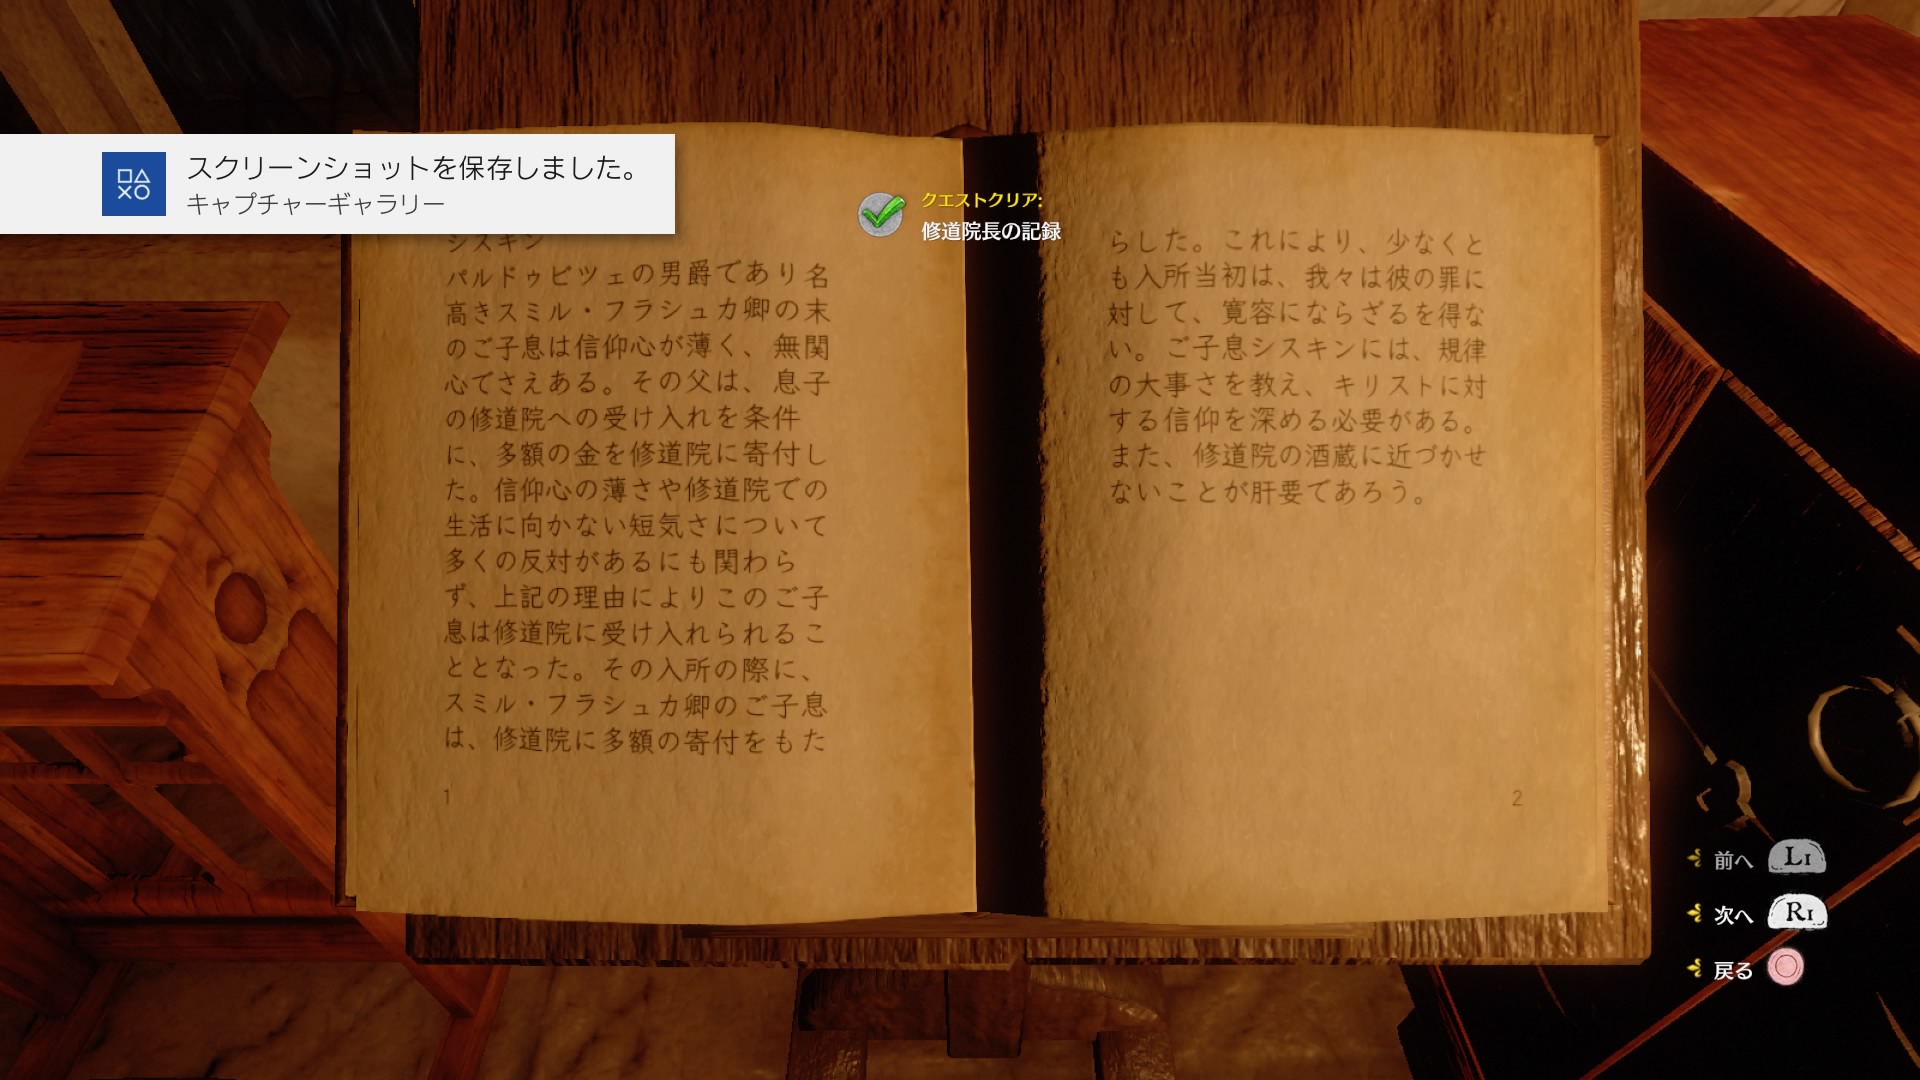 スクリーンショットを保存しました。
キャプチャーギャラリー
クエストクリア:
修道院長の記録
シスキン
パルドゥビツェの男爵であり名
高きスミル・フラシュカ卿の末
のご子息は信仰心が薄く、無関
心でさえある。その父は、息子
の修道院への受け入れを条件
に、多額の金を修道院に寄付し
た。信仰心の薄さや修道院での
生活に向かない短気さについて
多くの反対があるにも関わら
ず、上記の理由によりこのご子
息は修道院に受け入れられるこ
ととなった。その入所の際に、
スミル・フラシュカ卿のご子息
は、修道院に多額の寄付をもた
1
らした。これにより、少なくと
も入所当初は、我々は彼の罪に
対して、寛容にならざるを得な
い。ご子息シスキンには、規律
の大事さを教え、キリストに対
する信仰を深める必要がある。
また、修道院の酒蔵に近づかせ
ないことが肝要であろう。
2
前へ L1
次へ R1
戻る